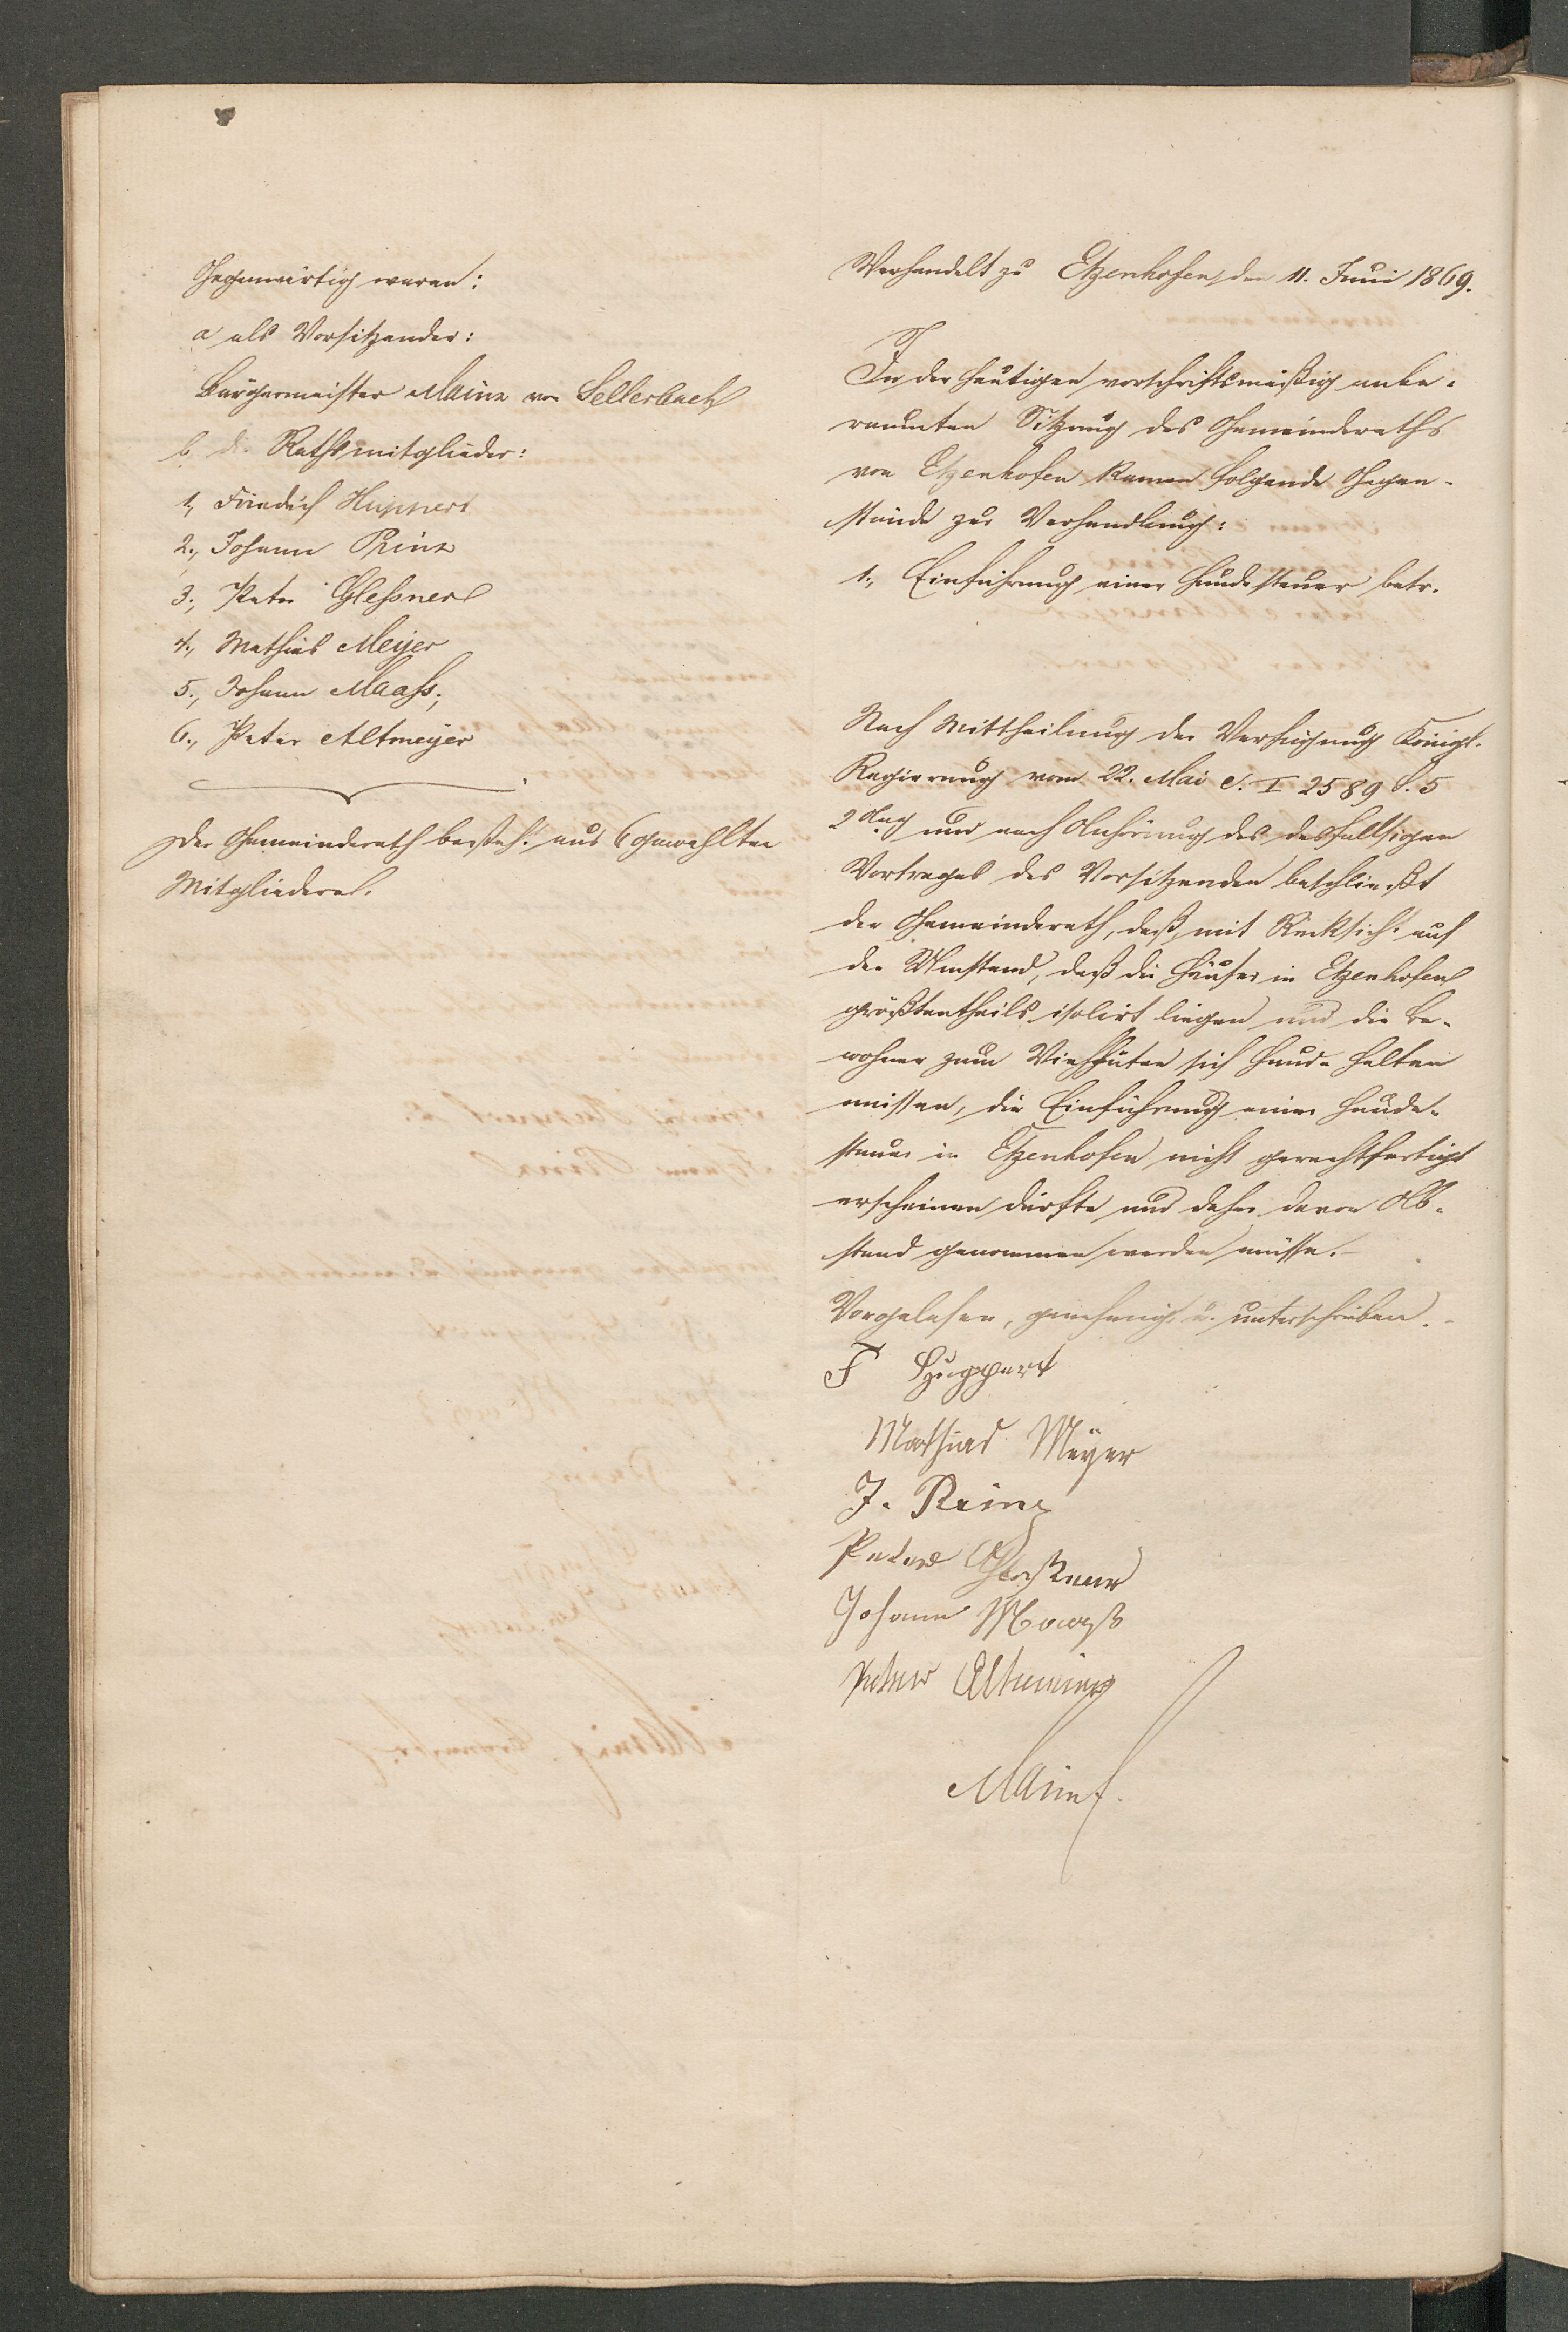 Gegenwärtig waren:
a als Vorsitzender:
Bürgermeister Mainz von Sellerbach
b die Rathsmitglieder:
1., Friedrich Huppert
2., Johann Prinz
3., Peter Glessner
4., Mathias Meyer
5., Johann Maaß;
6., Peter Altmeyer
Der Gemeinderath besteht aus 6 gewählten
Mitgliedern.
Verhandelt zu Etzenhofen, den 11. Juni 1869.
In der heutigen vorschriftsmäßig anbe-
raumten Sitzung des Gemeinderaths
von Etzenhofen kamen folgende Gegen-
stände zur Verhandlung:
1., Einführung einer Hundesteuer betr.
Nach Mittheilung der Verfügung Königl.
Regierung vom 22. Mai c. I 2589 S. 5
und nach Anhörung des desfallsigen
Vortrages des Vorsitzenden beschließt
der Gemeinderath, daß, mit Rücksicht auf
den Umstand, daß die Häuser in Etzenhofen
größtentheils isolirt liegen und die Be-
wohner zum Viehhüten sich Hunde halten
müssen, die Einführung einer Hunde-
steuer in Etzenhofen nicht gerechtfertigt
erscheinen dürfte und daher davon Ab-
stand genommen werden müsse.-
Vorgelesen, genehmigt u. unterschrieben.-
F Huppert
Mathias Meyer
J. Prinz
Peter Gleßner
Johann Maaß
Peter Altmeier
Mainz.